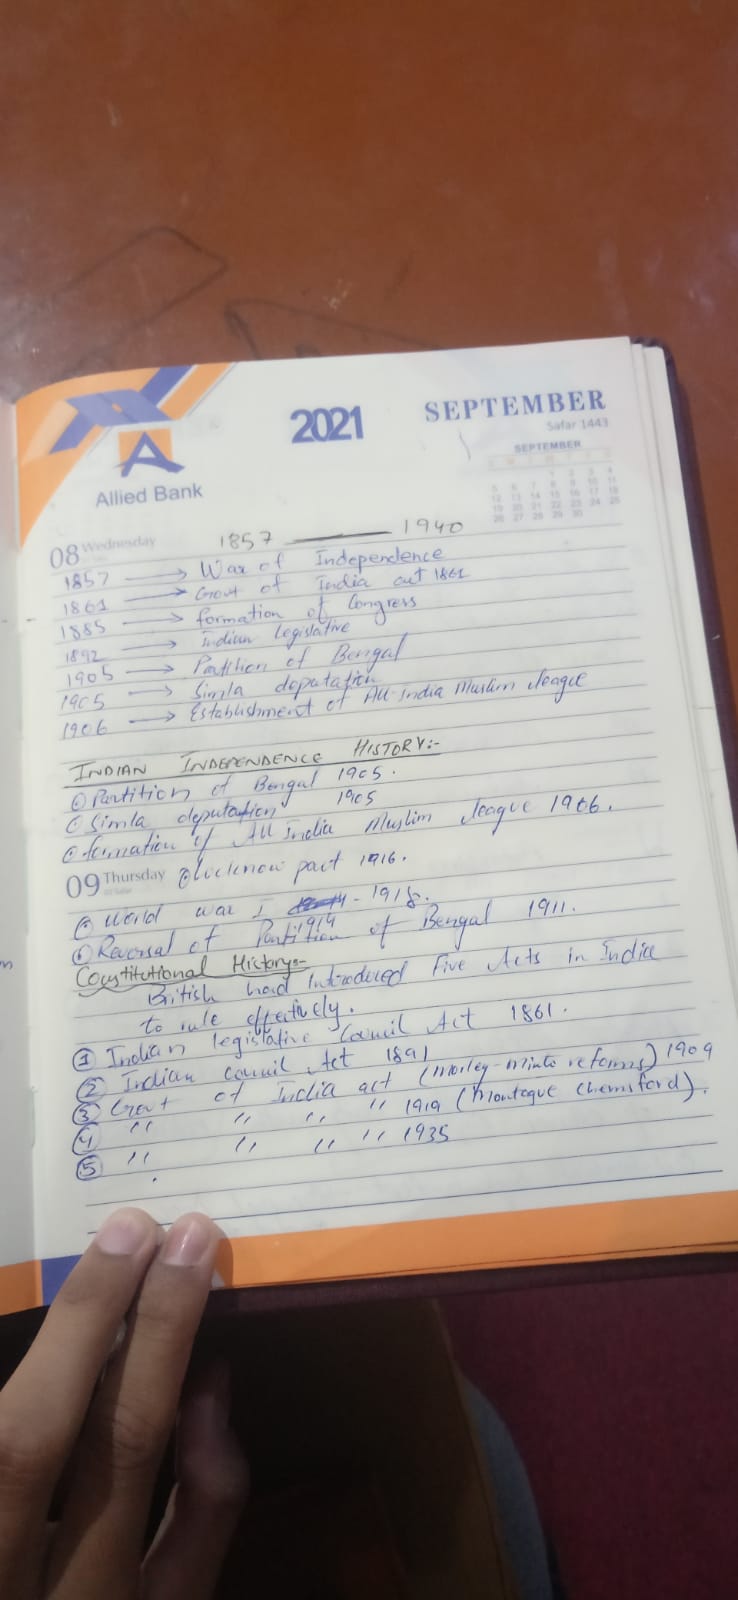 2021 SEPTEMBER
Safar 1443
SEPTEMBER
Allied Bank
08 Wednesday 1857 — 1940
1857 → War of Independence
1861 → Govt of India act 1861
1885 → formation of Congress
1892 → Indian legislative
1905 → Partition of Bengal
1905 → Simla deputation
1906 → Establishment of All India Muslim league
INDIAN INDEPENDENCE HISTORY:-
Partition of Bengal 1905.
Simla deputation 1905
formation of All India Muslim league 1906.
09 Thursday Lucknow pact 1916.
World war I 1914 - 1918.
Reversal of Partition of Bengal 1911.
Constitutional History:-
British had Introduced Five Acts in India
to rule effectively.
① Indian legislative Council Act 1861.
② Indian council Act 1891
③ Govt of India act (Morley-Minto reforms) 1909
④ " " " " 1919 (Montague Chemsford).
⑤ " " " " 1935